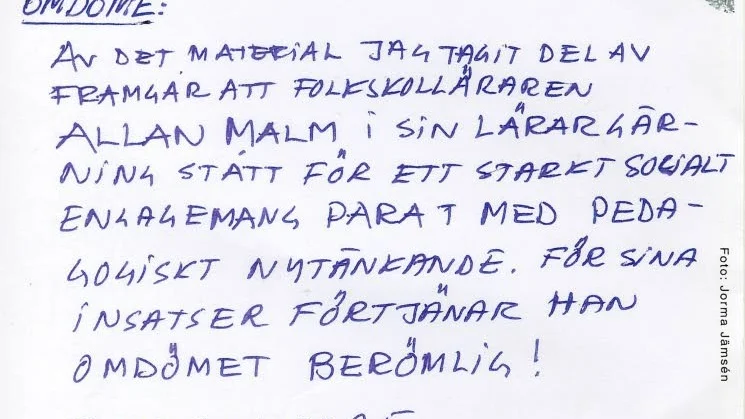 OMDÖME:
AV DET MATERIAL JAG TAGIT DEL AV
FRAMGÅR ATT FOLKSKOLLÄRAREN
ALLAN MALM I SIN LÄRARGÄR-
NING STÅTT FÖR ETT STARKT SOCIALT
ENGAGEMANG PARAT MED PEDA-
GOGISKT NYTÄNKANDE. FÖR SINA
INSATSER FÖRTJÄNAR HAN
OMDÖMET BERÖMLIG!
Foto: Jorma Jämsén